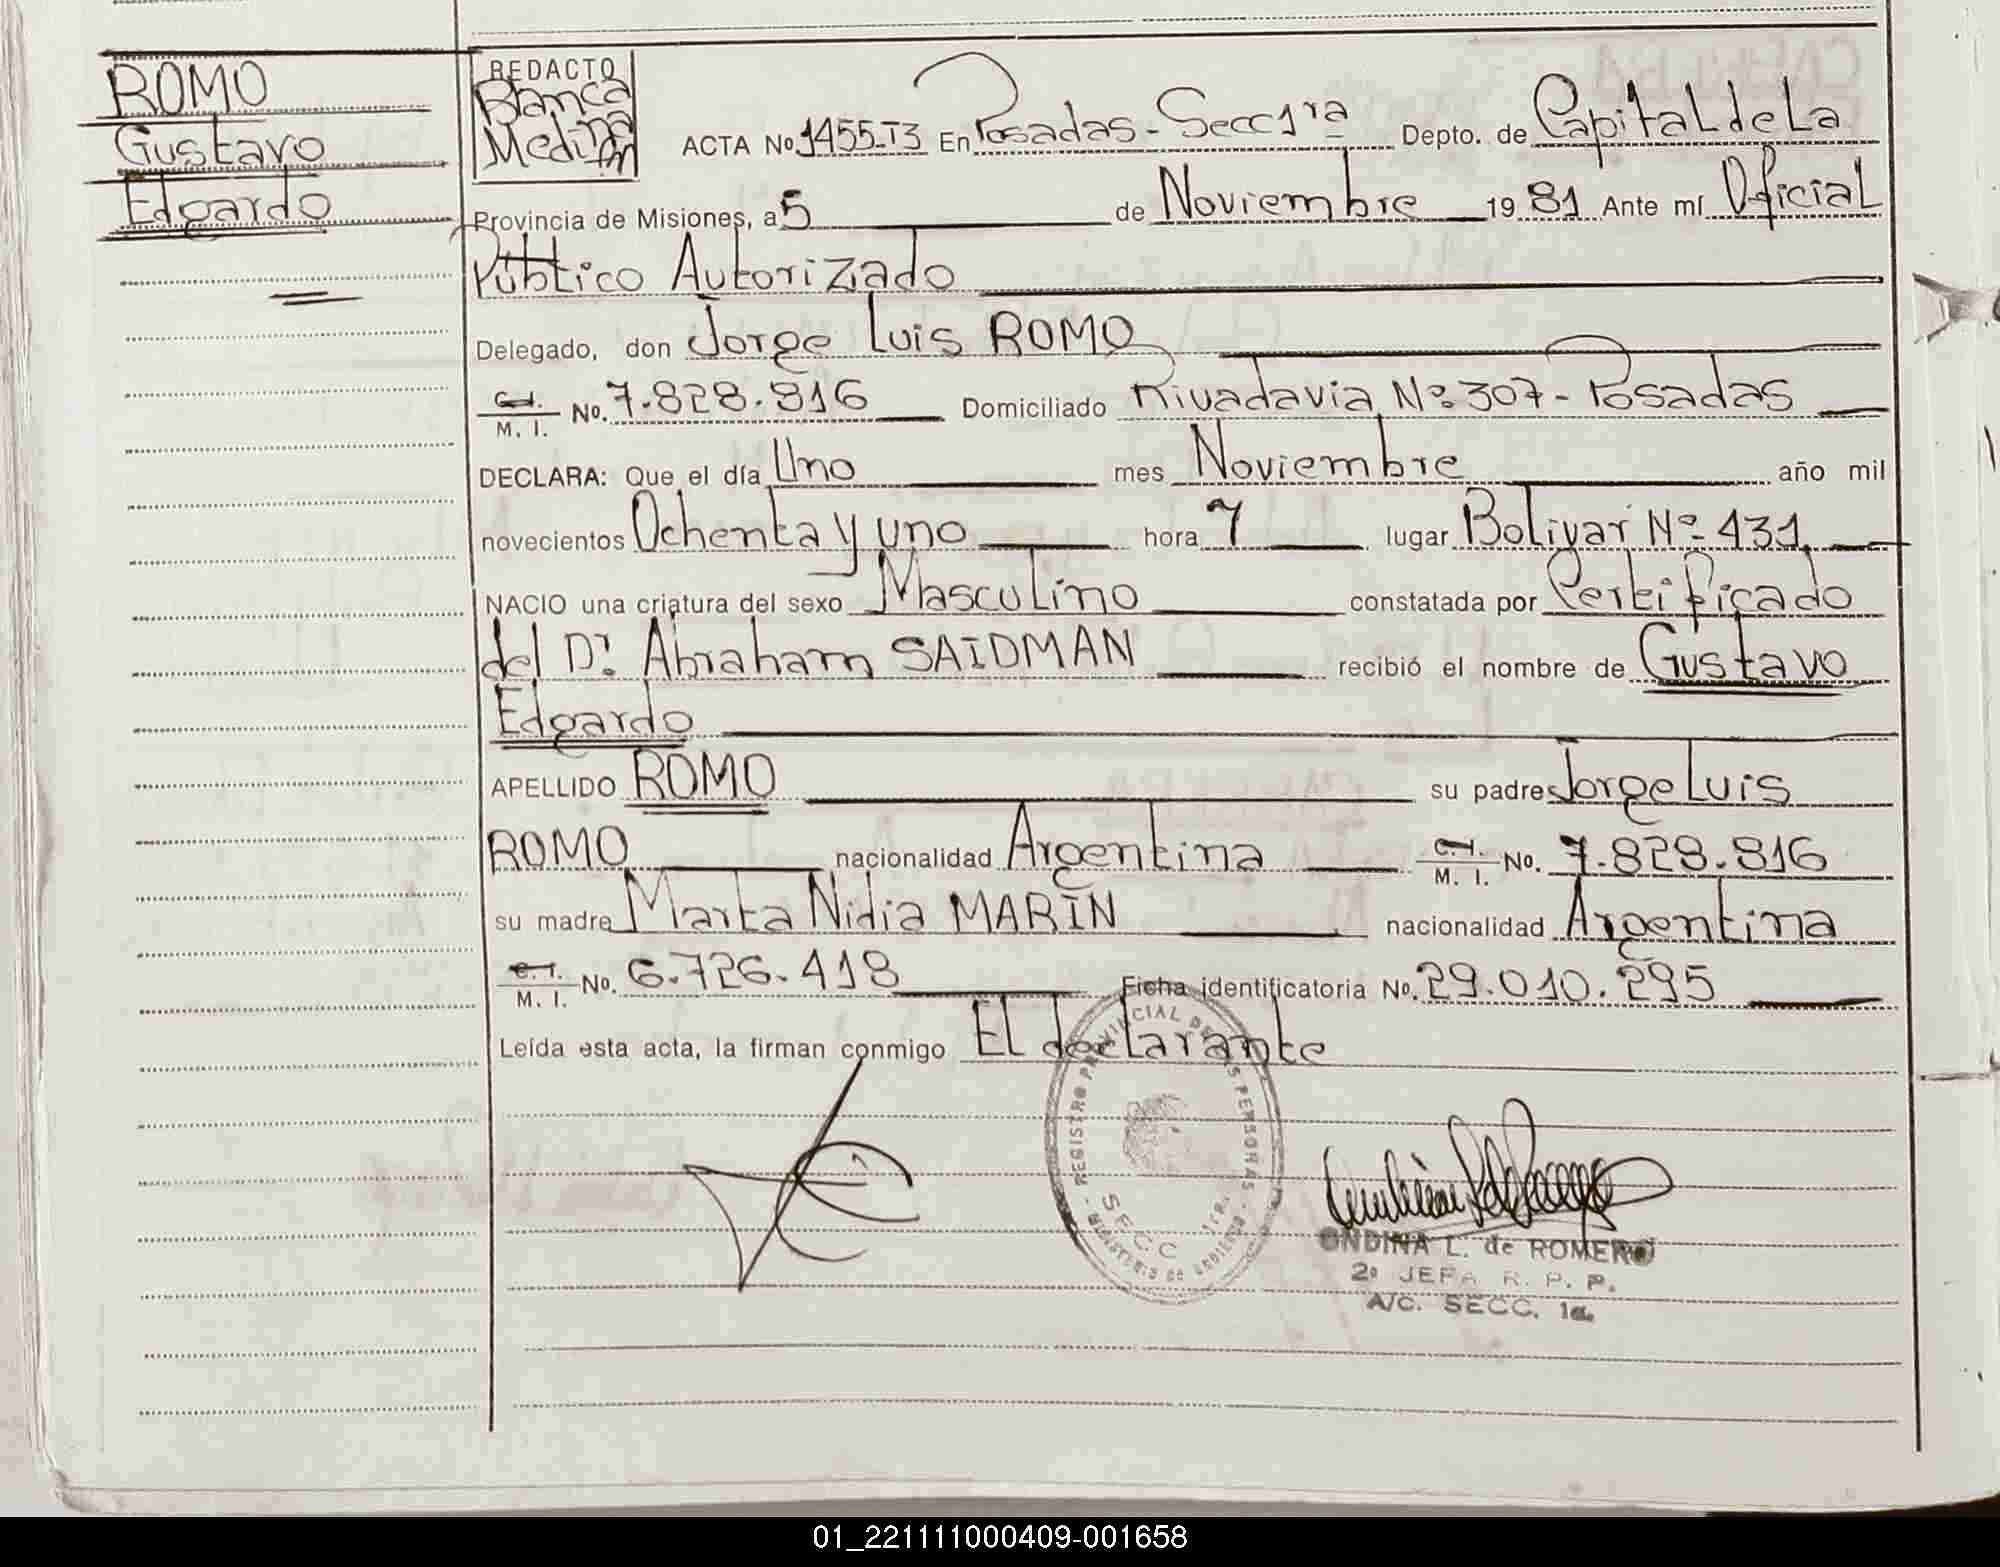 ROMO
Gustavo
Edgardo
REDACTO
Blanca
Medina
ACTA No. 1455-T3 En Posadas - Secc 1ra Depto. de Capital de La
Provincia de Misiones, a 5 de Noviembre 19 81 Ante mí Oficial
Público Autorizado
Delegado, don Jorge Luis ROMO
C. I. M. I. No. 7.828.816 Domiciliado Rivadavia Nº 307 - Posadas
DECLARA: Que el día Uno mes Noviembre año mil
novecientos Ochenta y uno hora 7 lugar Bolivar Nº 431
NACIO una criatura del sexo Masculino constatada por Certificado
del Dr. Abraham SAIDMAN recibió el nombre de Gustavo
Edgardo
APELLIDO ROMO su padre Jorge Luis
ROMO nacionalidad Argentina C. I. M. I. No. 7.828.816
su madre Marta Nidia MARIN nacionalidad Argentina
C. I. M. I. No. 6.726.418 Ficha identificatoria No. 29.010.295
Leída esta acta, la firman conmigo El declarante
REGISTRO PROVINCIAL DE LAS PERSONAS
SECC
ONDINA L. de ROMERO
2º JEFA R. P. P.
A/C. SECC. 1a.
01_221111000409-001658